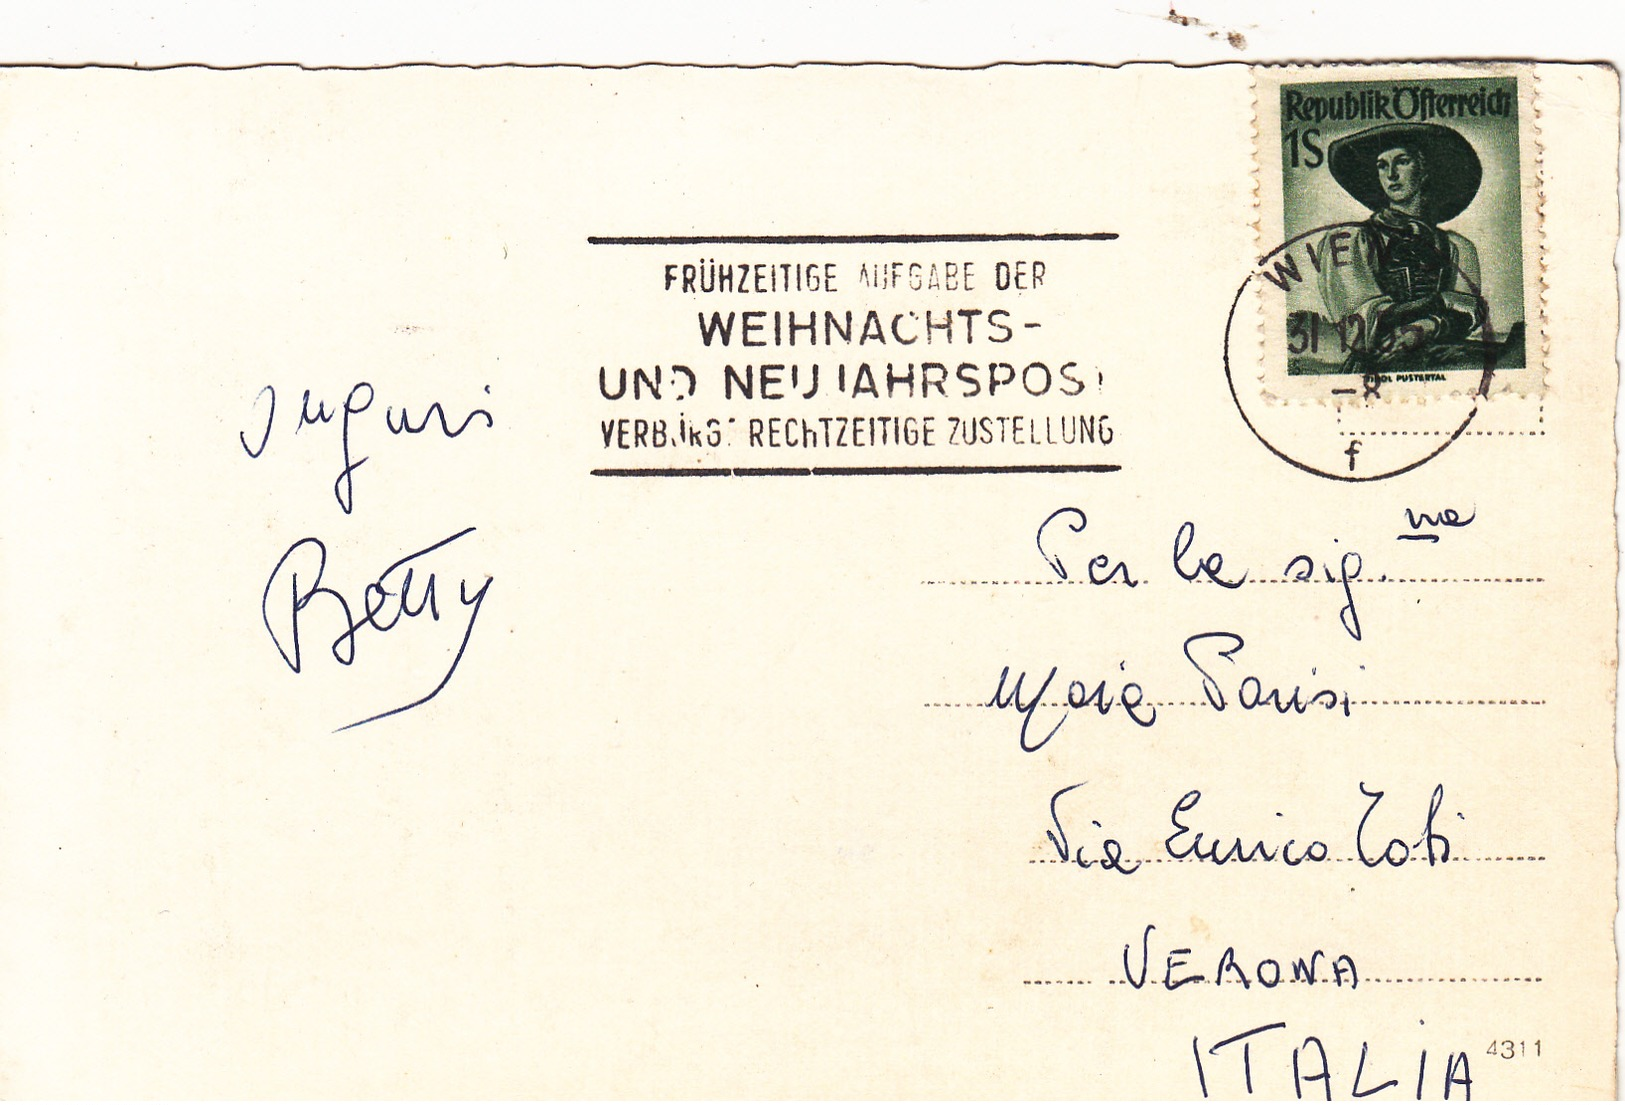 Republik Österreich
1S
TIROL PUSTERTAL
WIEN
31 12 55
-8
f
FRÜHZEITIGE AUFGABE DER
WEIHNACHTS-
UND NEUJAHRSPOST
VERBÜRGT RECHTZEITIGE ZUSTELLUNG
Auguri
Betty
Per la sig.na
Maria Parisi
Via Enrico Toti
VERONA
ITALIA
4311